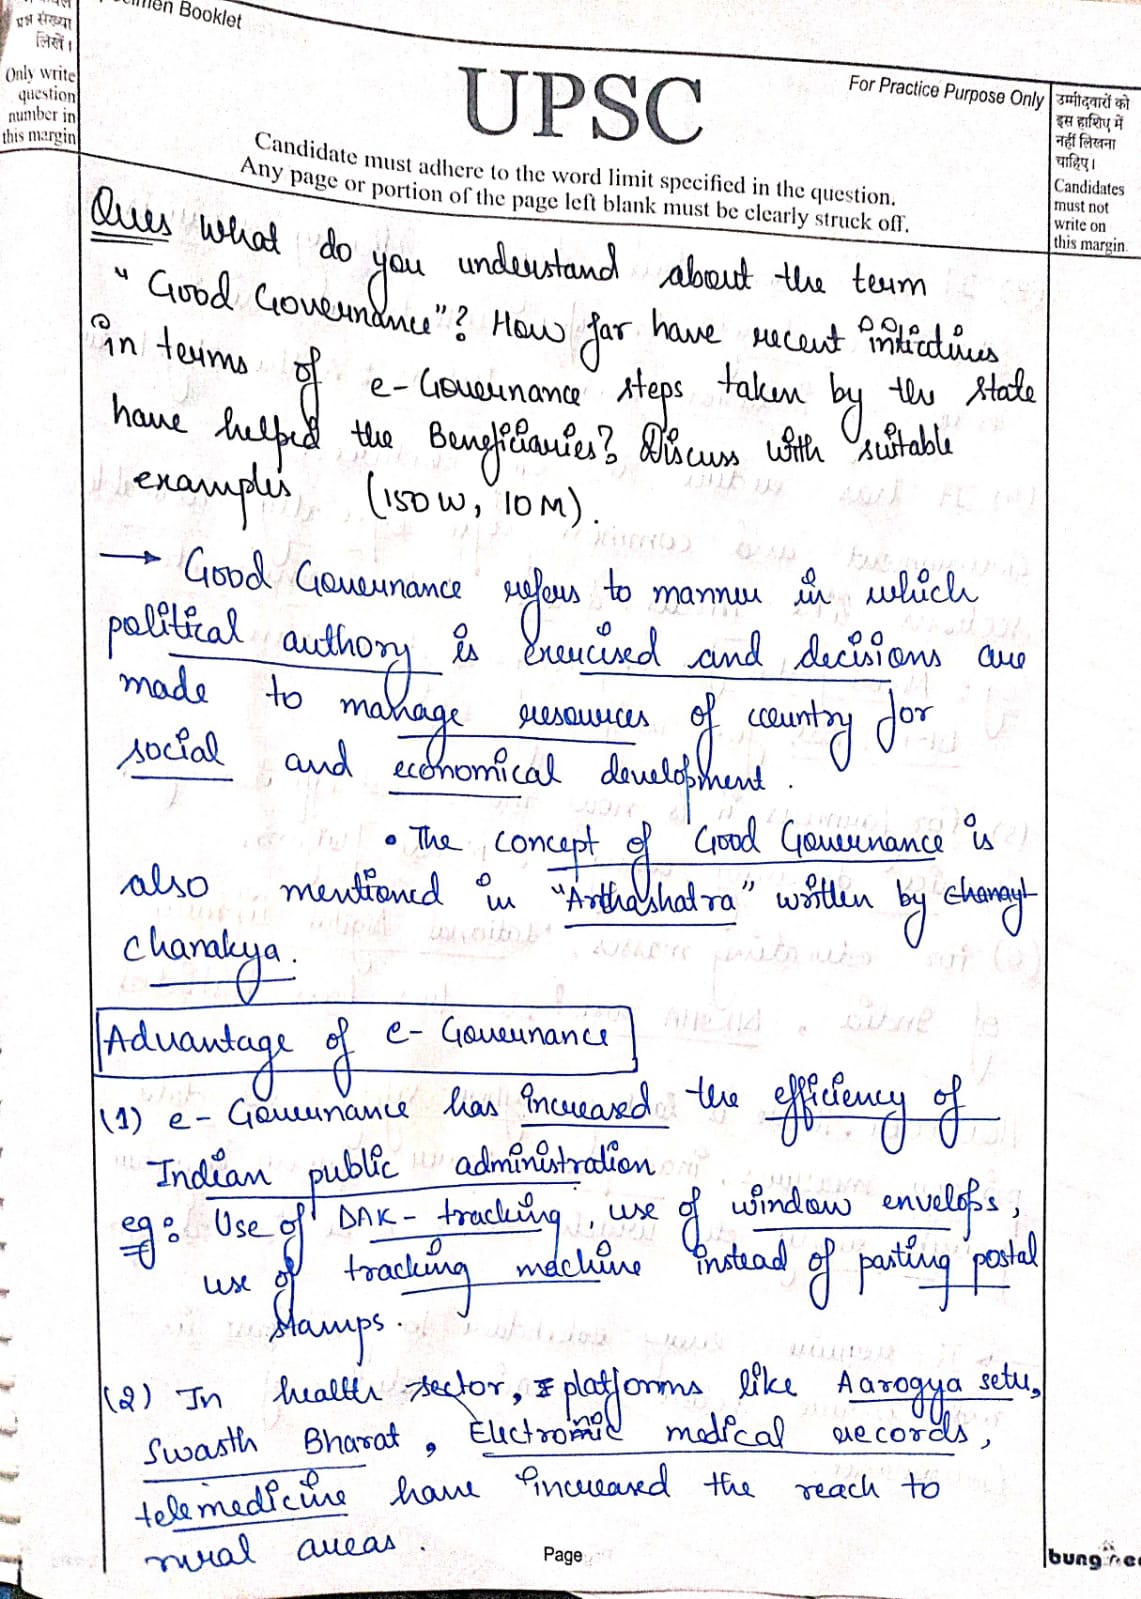 प्रश्न संख्या
लिखें।
Only write
question
number in
this margin
Booklet
UPSC
For Practice Purpose Only
Candidate must adhere to the word limit specified in the question.
Any page or portion of the page left blank must be clearly struck off.
उम्मीदवारों को
इस हाशिए में
नहीं लिखना
चाहिए।
Candidates
must not
write on
this margin.
Ques What do you understand about the term
"Good Governance"? How far have recent
in terms of e-Governance steps taken by the State
have helped the Beneficiaries? Discuss with suitable
examples (150W, 10M).
→ Good Governance refers to manner in which
political authory is exercised and decisions are
made to manage resources of country for
social and economical development.
• The concept of Good Governance is
also mentioned in "Arthashatra" written by
Chanakya.
Advantage of e-Governance
(1) e-Governance has increased the efficiency of
Indian public administration
eg: Use of DAK-tracking, use of window envelops,
use of tracking machine instead of pasting postal
stamps.
(2) In health sector, platforms like Aarogya setu,
Swasth Bharat, Electronic medical records,
telemedicine have increased the reach to
rural areas.
Page